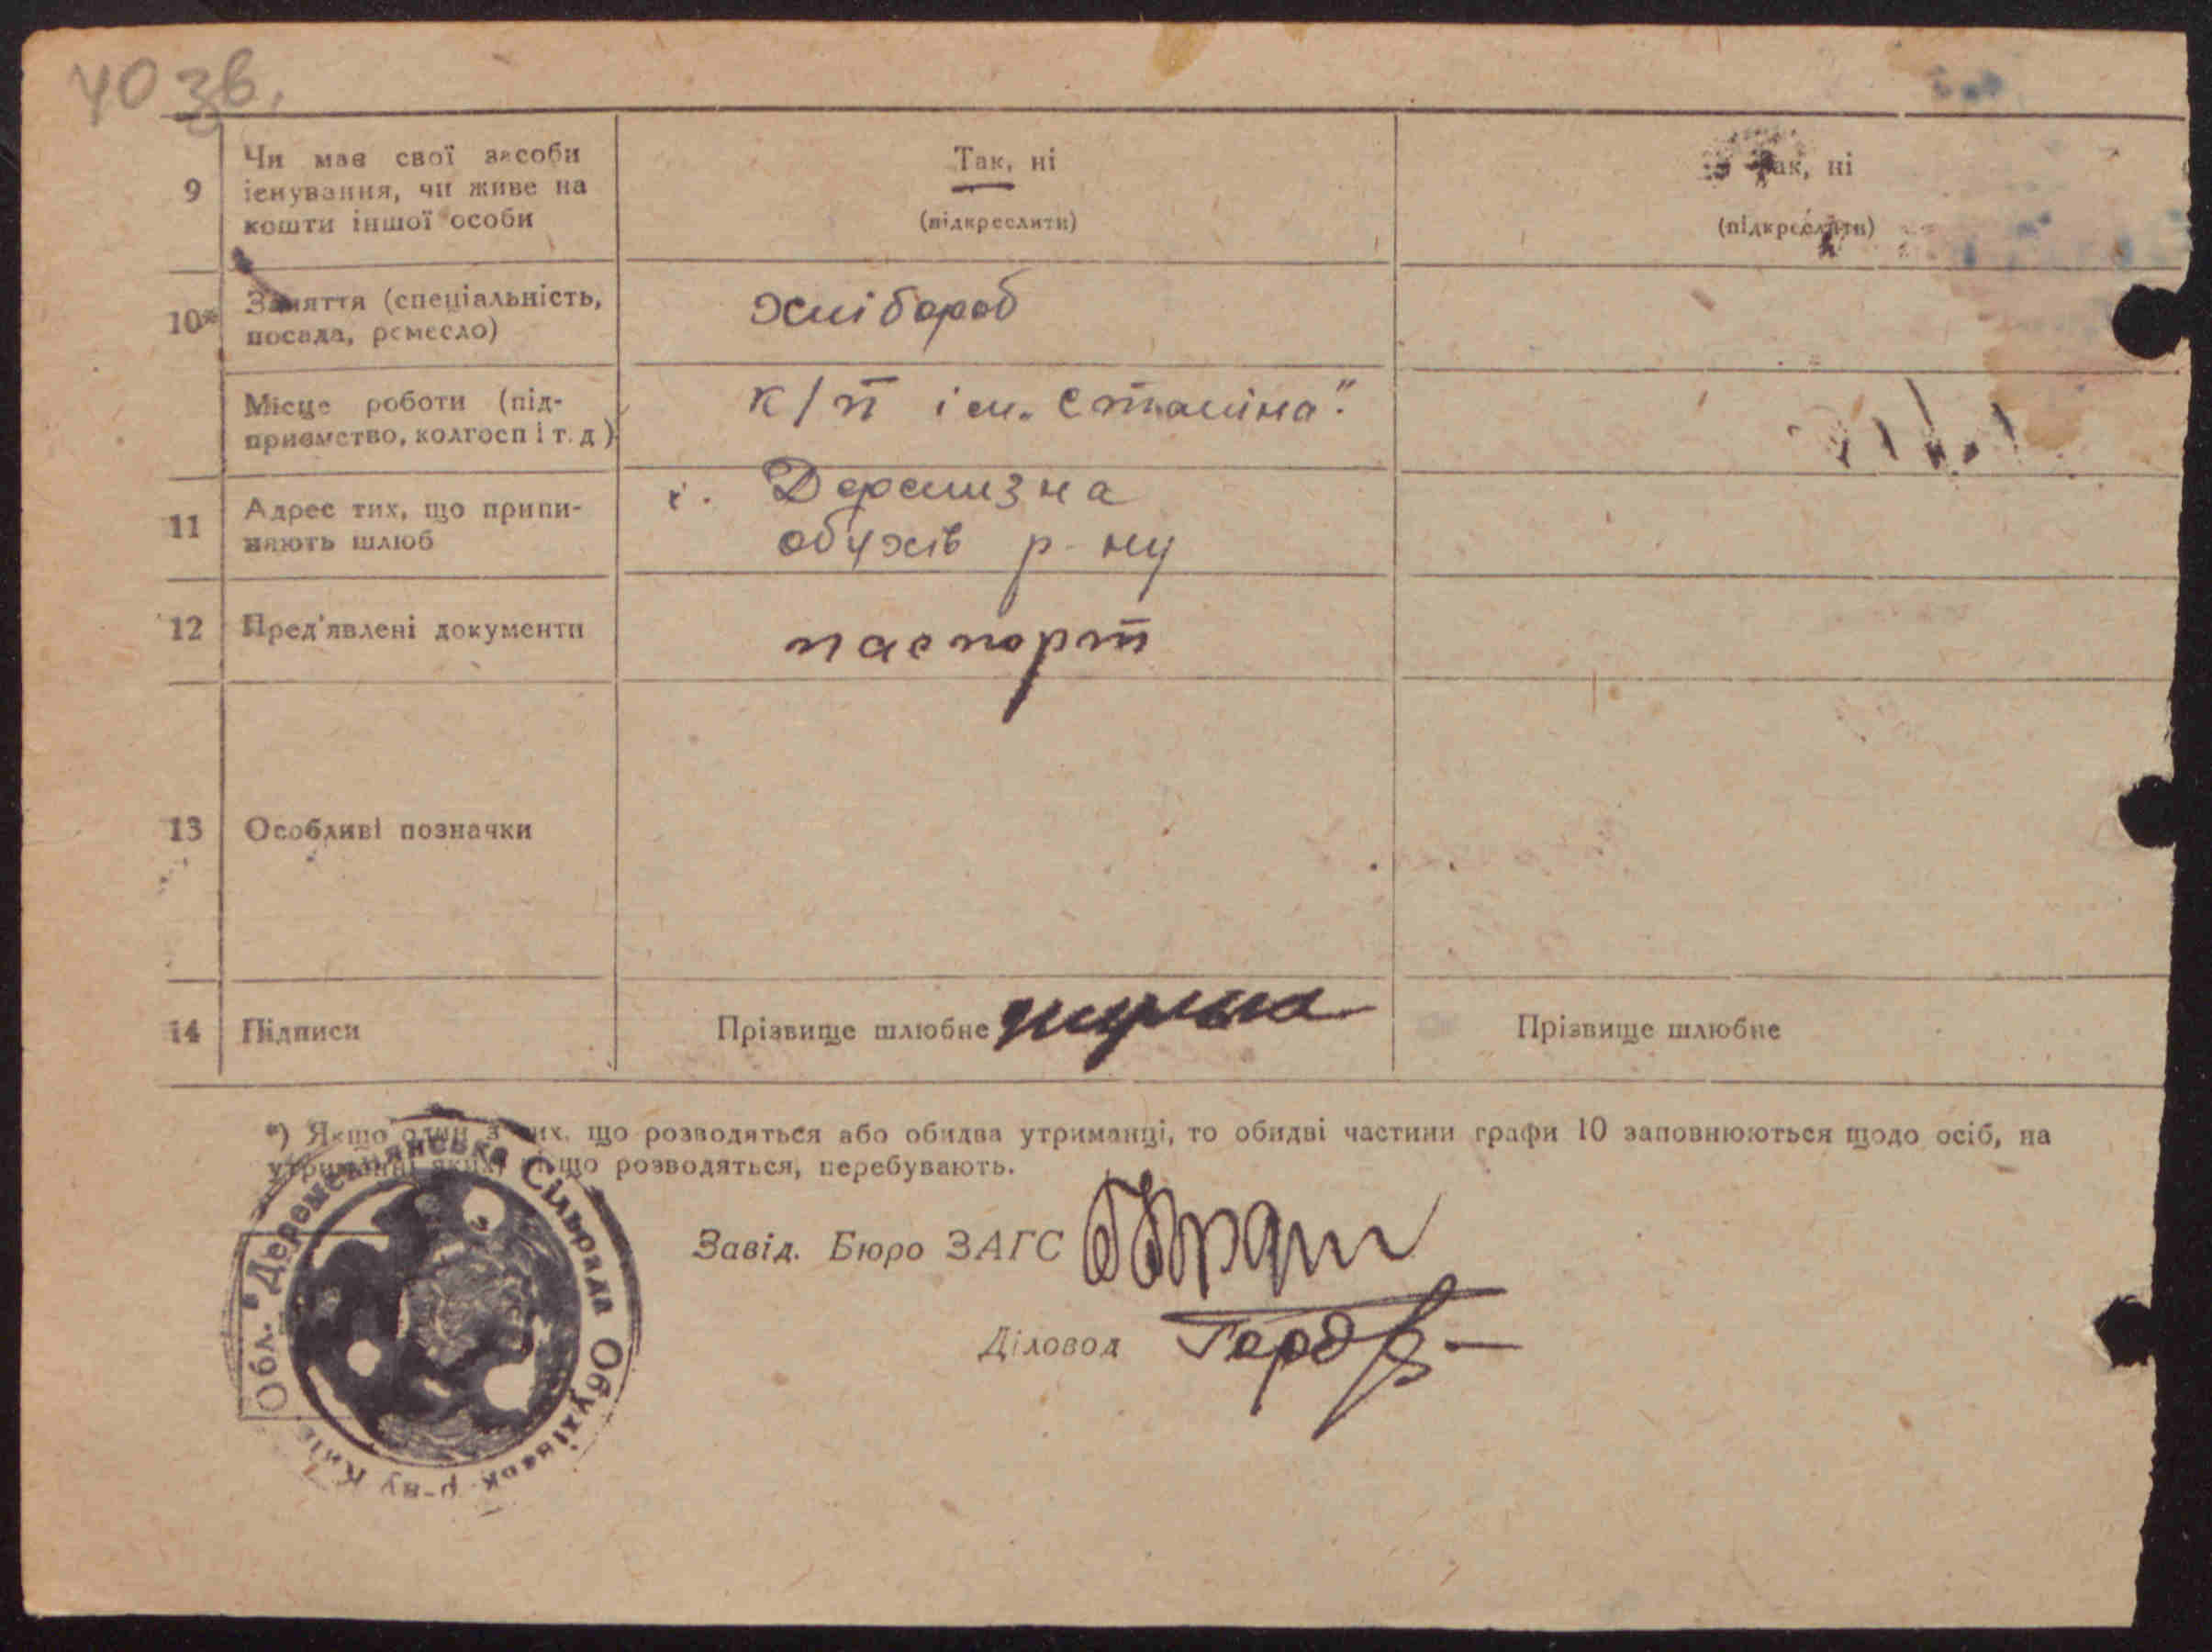 40 зв.
9 Чи має свої засоби існування, чи живе на кошти іншої особи
Так, ні
(підкреслити)
Так, ні
(підкреслити)
10* Заняття (спеціальність, посада, ремесло)
хлібороб
Місце роботи (підприємство, колгосп і т. д)
к/п ім. Сталіна"
11 Адрес тих, що припиняють шлюб
с. Деремизна
обухів р-ну
12 Пред'явлені документи
паспорт
13 Особливі позначки
14 Підписи
Прізвище шлюбне
Прізвище шлюбне
*) Якщо один з них, що розводяться або обидва утриманці, то обидві частини графи 10 заповнюються щодо осіб, на
утриманні яких, що розводяться, перебувають.
Завід. Бюро ЗАГС
Діловод
Сільрада Обухівськ. р-ну Київ Обл.